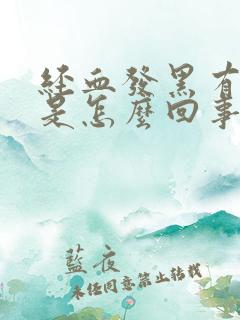 經血發黑有
是怎麼回事
藍夜
未經同意禁止轉載